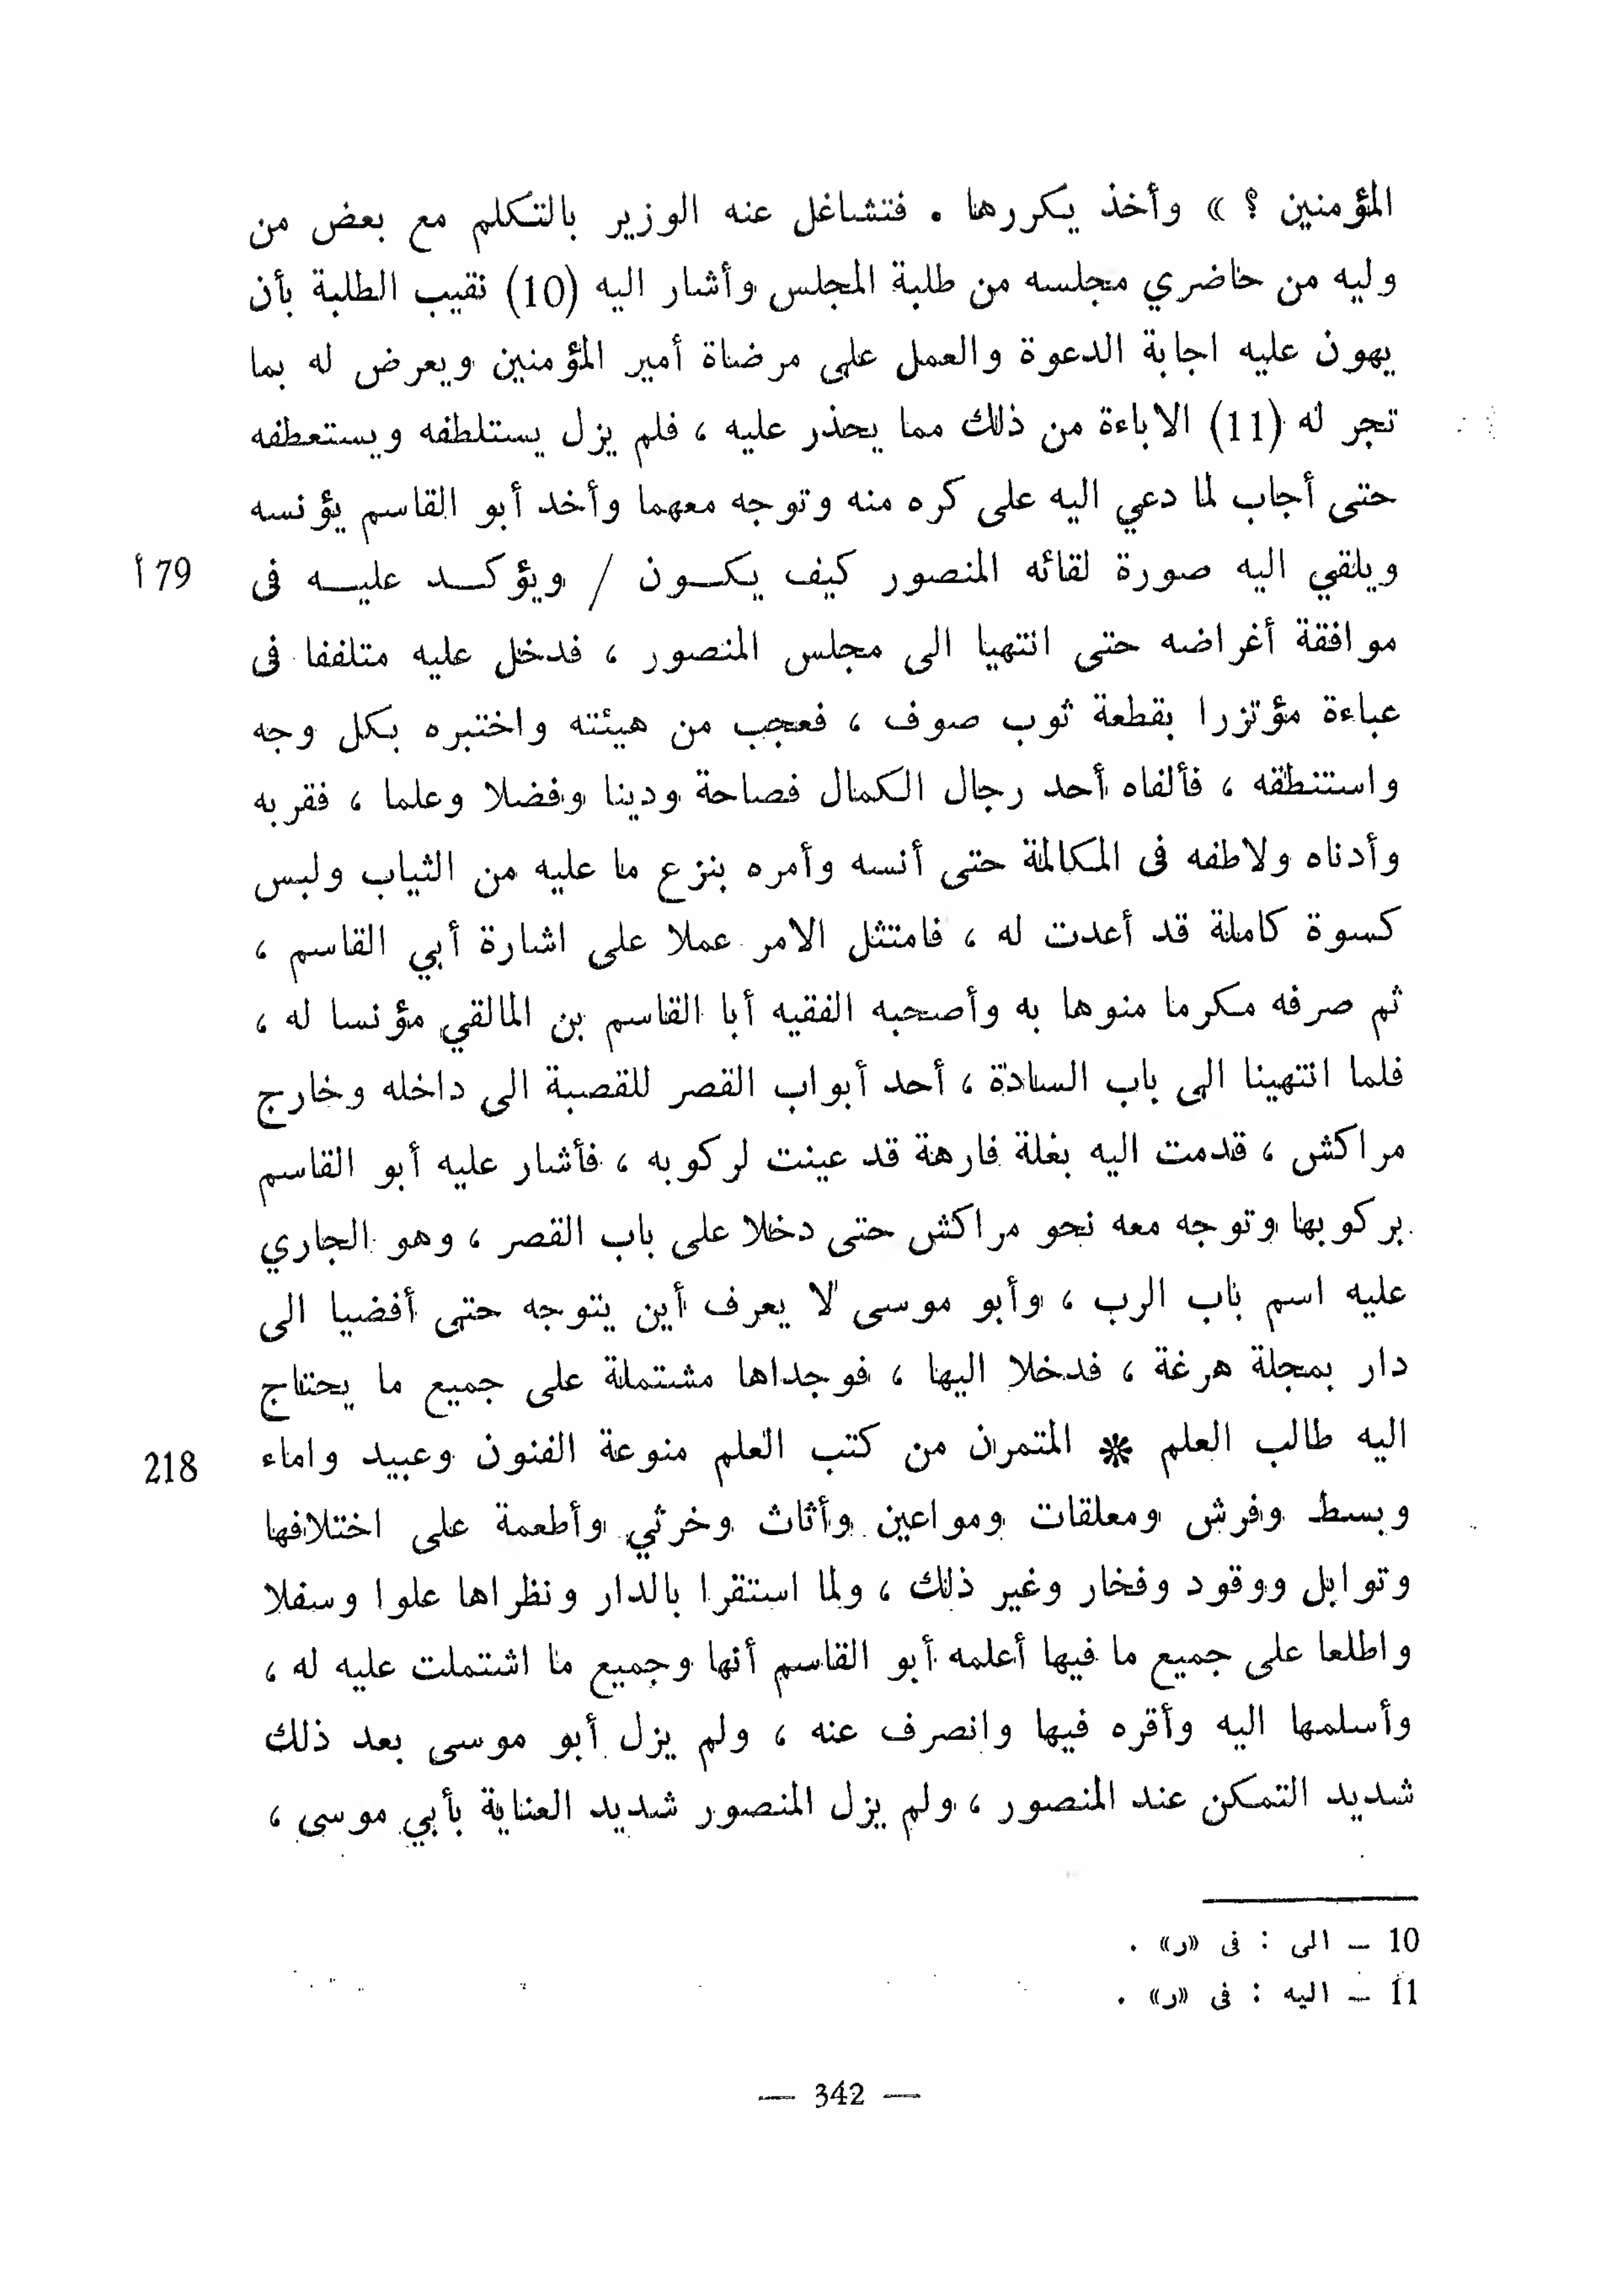 المؤمنين ؟ » وأخذ يكررها . فتشاغل عنه الوزير بالتكلم مع بعض من
وليه من حاضري مجلسه من طلبة المجلس وأشار اليه (10) نقيب الطلبة بأن
يهون عليه اجابة الدعوة والعمل على مرضاة أمير المؤمنين ويعرض له بما
تجر له (11) الاباءة من ذلك مما يحذر عليه ، فلم يزل يستلطفه ويستعطفه
حتى أجاب لما دعي اليه على كره منه وتوجه معهما وأخد أبو القاسم يؤنسه
ويلقي اليه صورة لقائه المنصور كيف يكون / ويؤكد عليه فى
179 أ
موافقة أغراضه حتى انتهيا الى مجلس المنصور ، فدخل عليه متلففا فى
عباءة مؤتزرا بقطعة ثوب صوف ، فعجب من هيئته واختبره بكل وجه
واستنطقه ، فألفاه أحد رجال الكمال فصاحة ودينا وفضلا وعلما ، فقربه
وأدناه ولاطفه فى المكالمة حتى أنسه وأمره بنزع ما عليه من الثياب ولبس
كسوة كاملة قد أعدت له ، فامتثل الامر عملا على اشارة أبي القاسم ،
ثم صرفه مكرما منوها به وأصحبه الفقيه أبا القاسم بن المالقي مؤنسا له ،
فلما انتهينا الى باب السادة ، أحد أبواب القصر للقصبة الى داخله وخارج
مراكش ، قدمت اليه بغلة فارهة قد عينت لركوبه ، فأشار عليه أبو القاسم
بركوبها وتوجه معه نحو مراكش حتى دخلا على باب القصر ، وهو الجاري
عليه اسم باب الرب ، وأبو موسى لا يعرف أين يتوجه حتى أفضيا الى
دار بمحلة هرغة ، فدخلا اليها ، فوجداها مشتملة على جميع ما يحتاج
اليه طالب العلم * المتمرن من كتب العلم منوعة الفنون وعبيد واماء
218
وبسط وفرش ومعلقات ومواعين وأثاث وخرثي وأطعمة على اختلافها
وتوابل ووقود وفخار وغير ذلك ، ولما استقرا بالدار ونظراها علوا وسفلا
واطلعا على جميع ما فيها أعلمه أبو القاسم أنها وجميع ما اشتملت عليه له ،
وأسلمها اليه وأقره فيها وانصرف عنه ، ولم يزل أبو موسى بعد ذلك
شديد التمكن عند المنصور ، ولم يزل المنصور شديد العناية بأبي موسى ،
10 — الى : فى «ر» .
11 — اليه : فى «ر» .
— 342 —